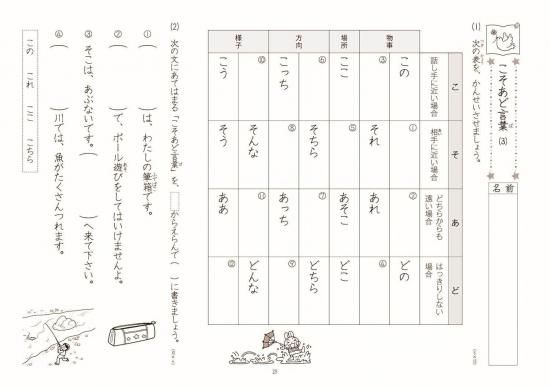 こそあど言葉 (3)
名前
(1) 次の表を、かんせいさせましょう。
こ 話し手に近い場合
そ 相手に近い場合
あ どちらからも遠い場合
ど はっきりしない場合
物事
この ① ② どの
③ それ あれ ④
場所
ここ ⑤ あそこ どこ
方向
⑥ そちら ⑦ どちら
こっち ⑧ あっち ⑨
様子
⑩ そんな ⑪ どんな
こう そう ああ ⑫
(2) 次の文にあてはまる「こそあど言葉」を、 からえらんで( )に書きましょう。
① ( )は、わたしの筆箱です。
② ( )で、ボール遊びをしてはいけませんよ。
③ そこは、あぶないです。( )へ来て下さい。
④ ( )川では、魚がたくさんつれます。
この これ ここ こちら